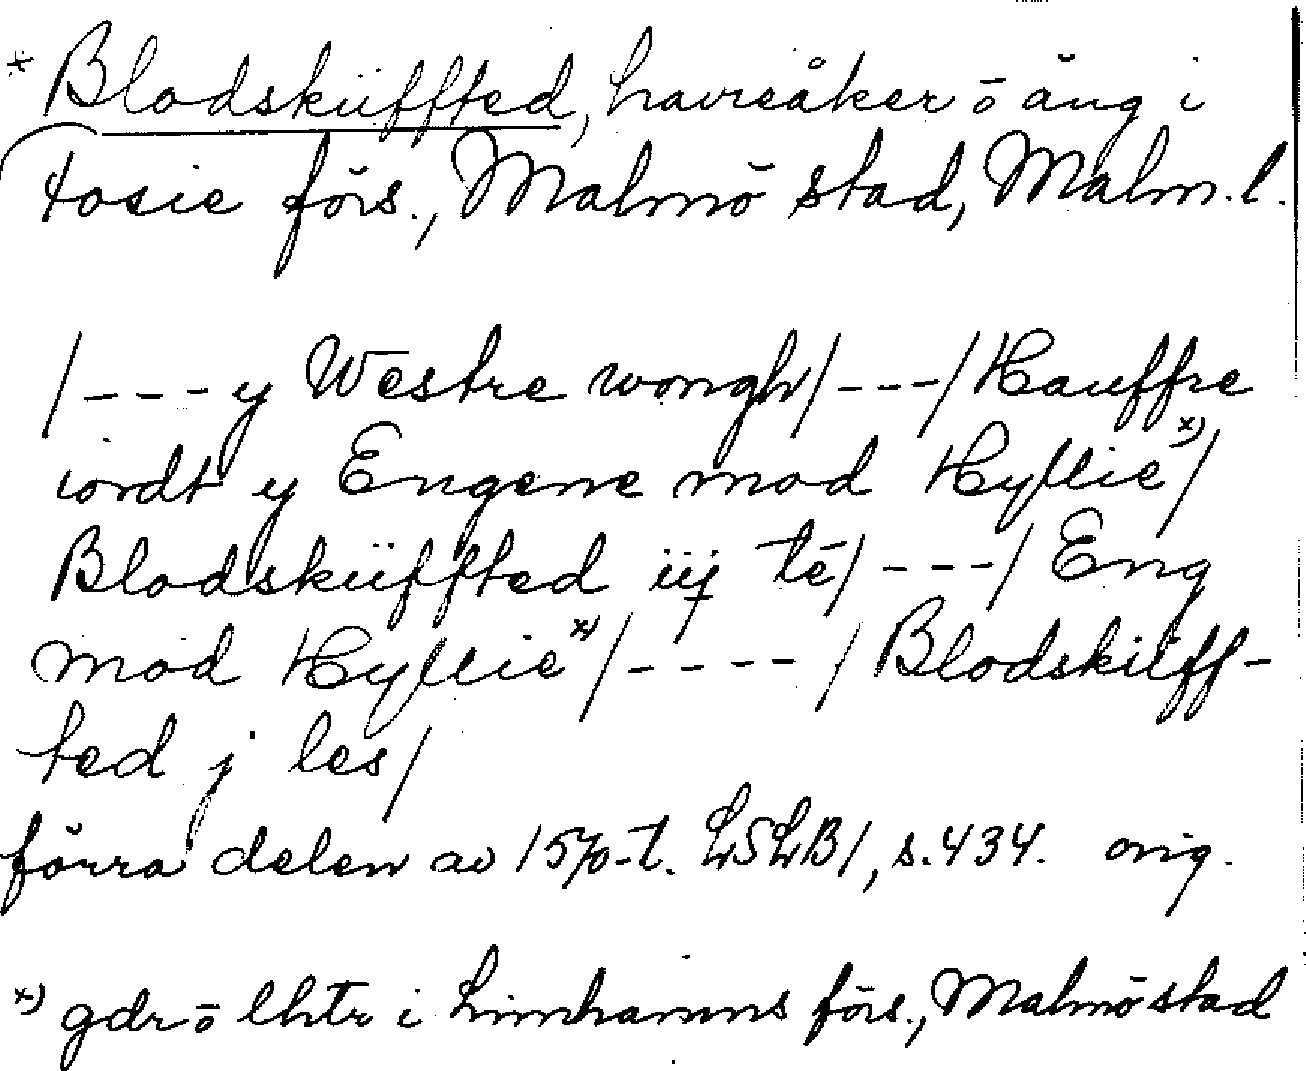 * Blodskiüffted, havreåker ō äng i
Tosie förs., Malmö stad, Malm. l.
/---y Westre wongh/---/Hauffre
iordt y Engene mod Hyllie x)/
Blodskiüffted iij tē/---/Eng
mod Hyllie x)/----/Blodskiüff-
ted j les/
förra delen av 1570-t. LSLB1, s. 434. orig.
x) gdr ō lhtr i Limhamns förs., Malmö stad